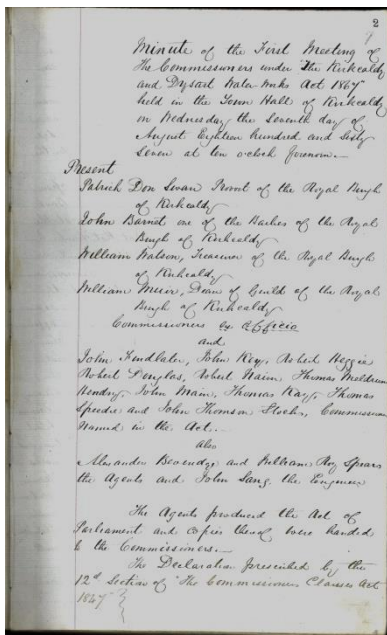 2
Minute of the First Meeting of
the Commissioners under "the Kirkcaldy
and Dysart Water Works Act 1867"
held in the Town Hall of Kirkcaldy
on Wednesday the Seventh day of
August Eighteen hundred and Sixty
Seven at ten o'clock forenoon.—
Present
Patrick Don Swan Provost of the Royal Burgh
of Kirkcaldy
John Barnet one of the Bailies of the Royal
Burgh of Kirkcaldy
William Watson, Treasurer of the Royal Burgh
of Kirkcaldy
William Dean of Guild of the Royal
Burgh of Kirkcaldy
Commissioners ex officio
and
John Findlater, John Key, Robert Heggie
Robert Douglas, Robert Nairn, Thomas Meldrum
Hendry, John Main, Thomas Kay, Thomas
Speedie and John Thomson Stocks, Commissioners
named in the Act.—
also
Alexander Beveridge and William Roy Spears
the Agents and John Lang the Engineer
The Agents produced the Act of
Parliament and copies thereof were handed
to the Commissioners.—
The Declaration prescribed by the
12th Section of "The Commissioners Clauses Act
1847"